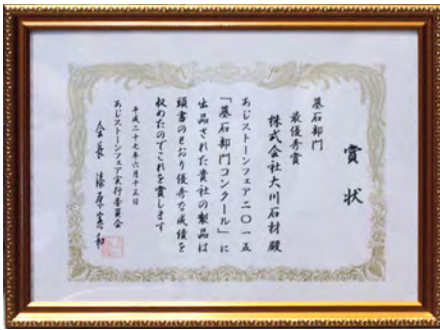 賞状
墓石部門
最優秀賞
株式会社大川石材殿
あじストーンフェア二〇一五
「墓石部門コンクール」に
出品された貴社の製品は
頭書のとおり優秀な成績を
収めたのでこれを賞します
平成二十七年六月十五日
あじストーンフェア実行委員会
会長 漆原憲和